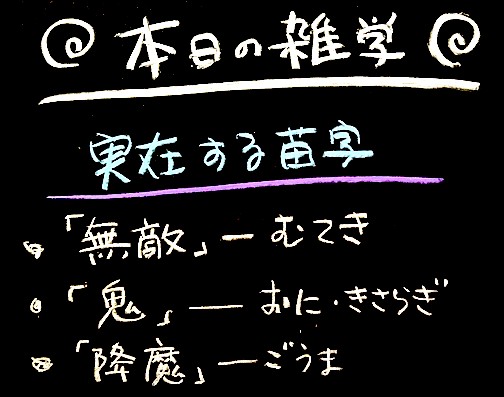 本日の雑学
実在する苗字
・「無敵」ーむてき
・「鬼」ーおに・きさらぎ
・「降魔」ーごうま